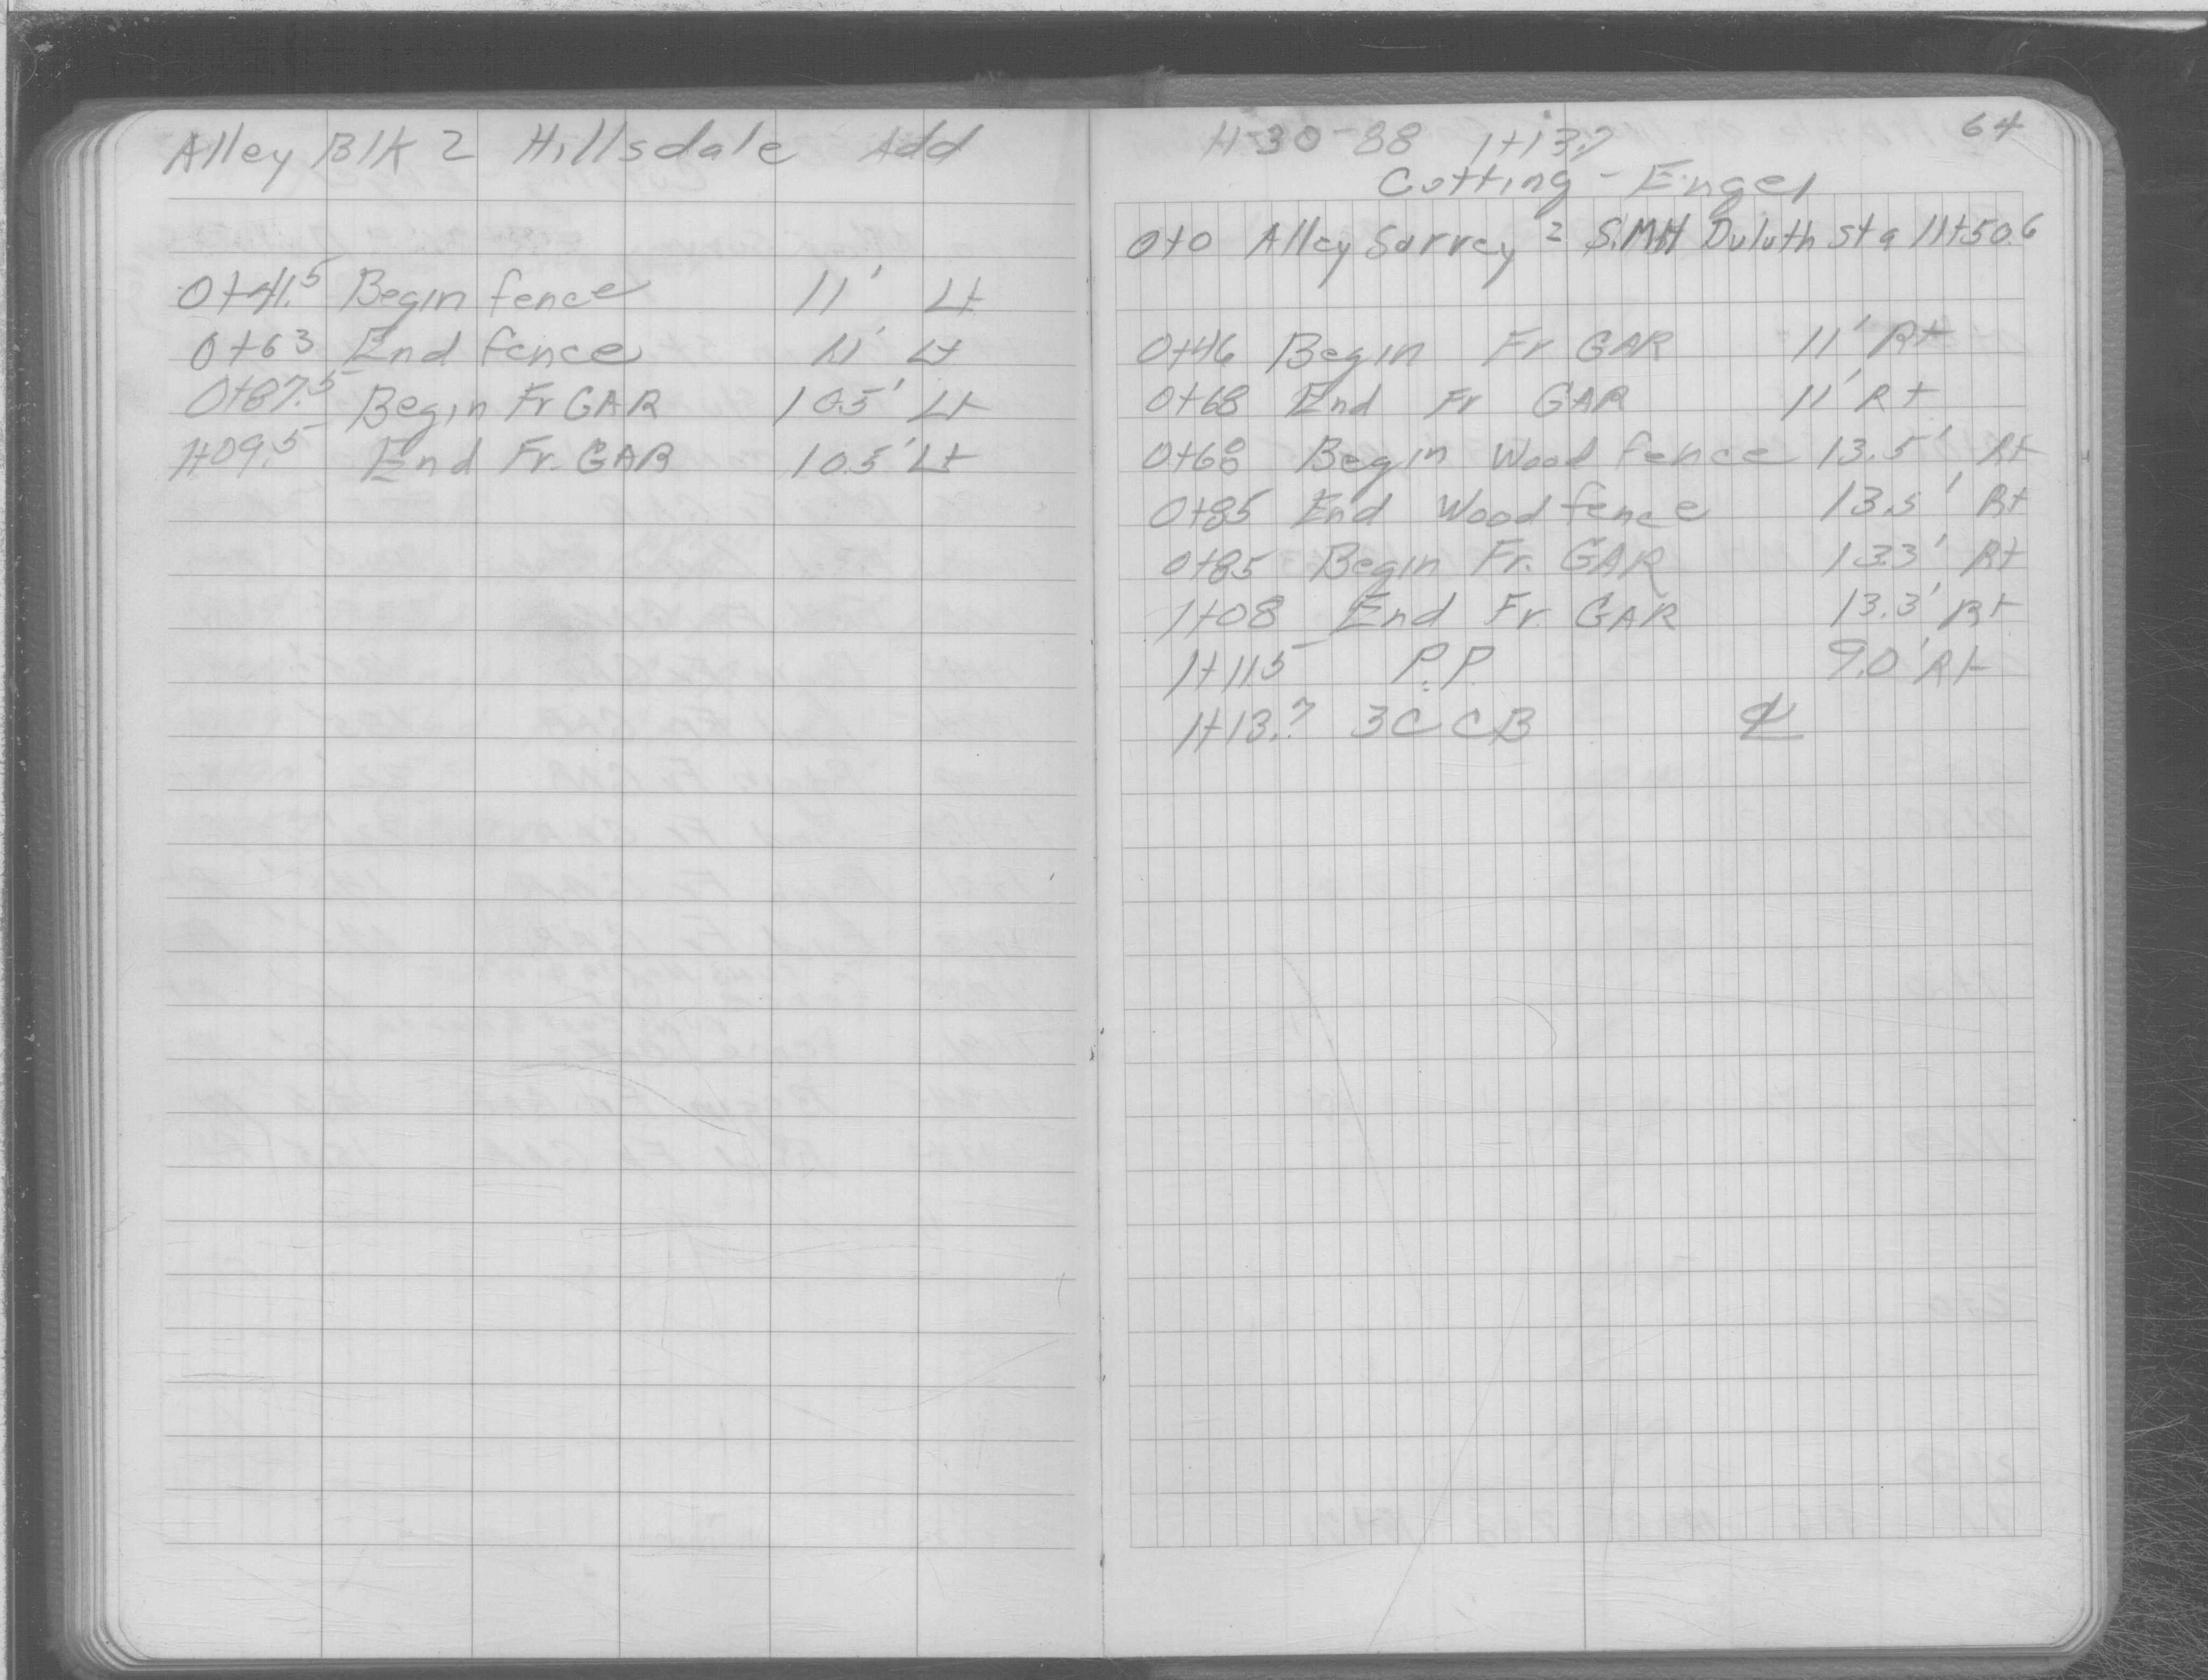 Alley Blk 2 Hillsdale Add
0+41.5 Begin fence 11' Lt
0+63 End fence 11' Lt
0+87.5 Begin Fr GAR 10.5' Lt
1+09.5 End Fr. GAR 10.5' Lt
64
11-30-88 1+13.7
Cutting - Engel
0+0 Alley Survey = S.MH Duluth sta 11+50.6
0+46 Begin Fr GAR 11' Rt
0+68 End Fr GAR 11' Rt
0+68 Begin Wood fence 13.5' Rt
0+85 End Wood fence 13.5' Rt
0+85 Begin Fr. GAR 13.3' Rt
1+08 End Fr GAR 13.3' Rt
1+11.5 P.P. 9.0' Rt
1+13.7 3C CB ℄